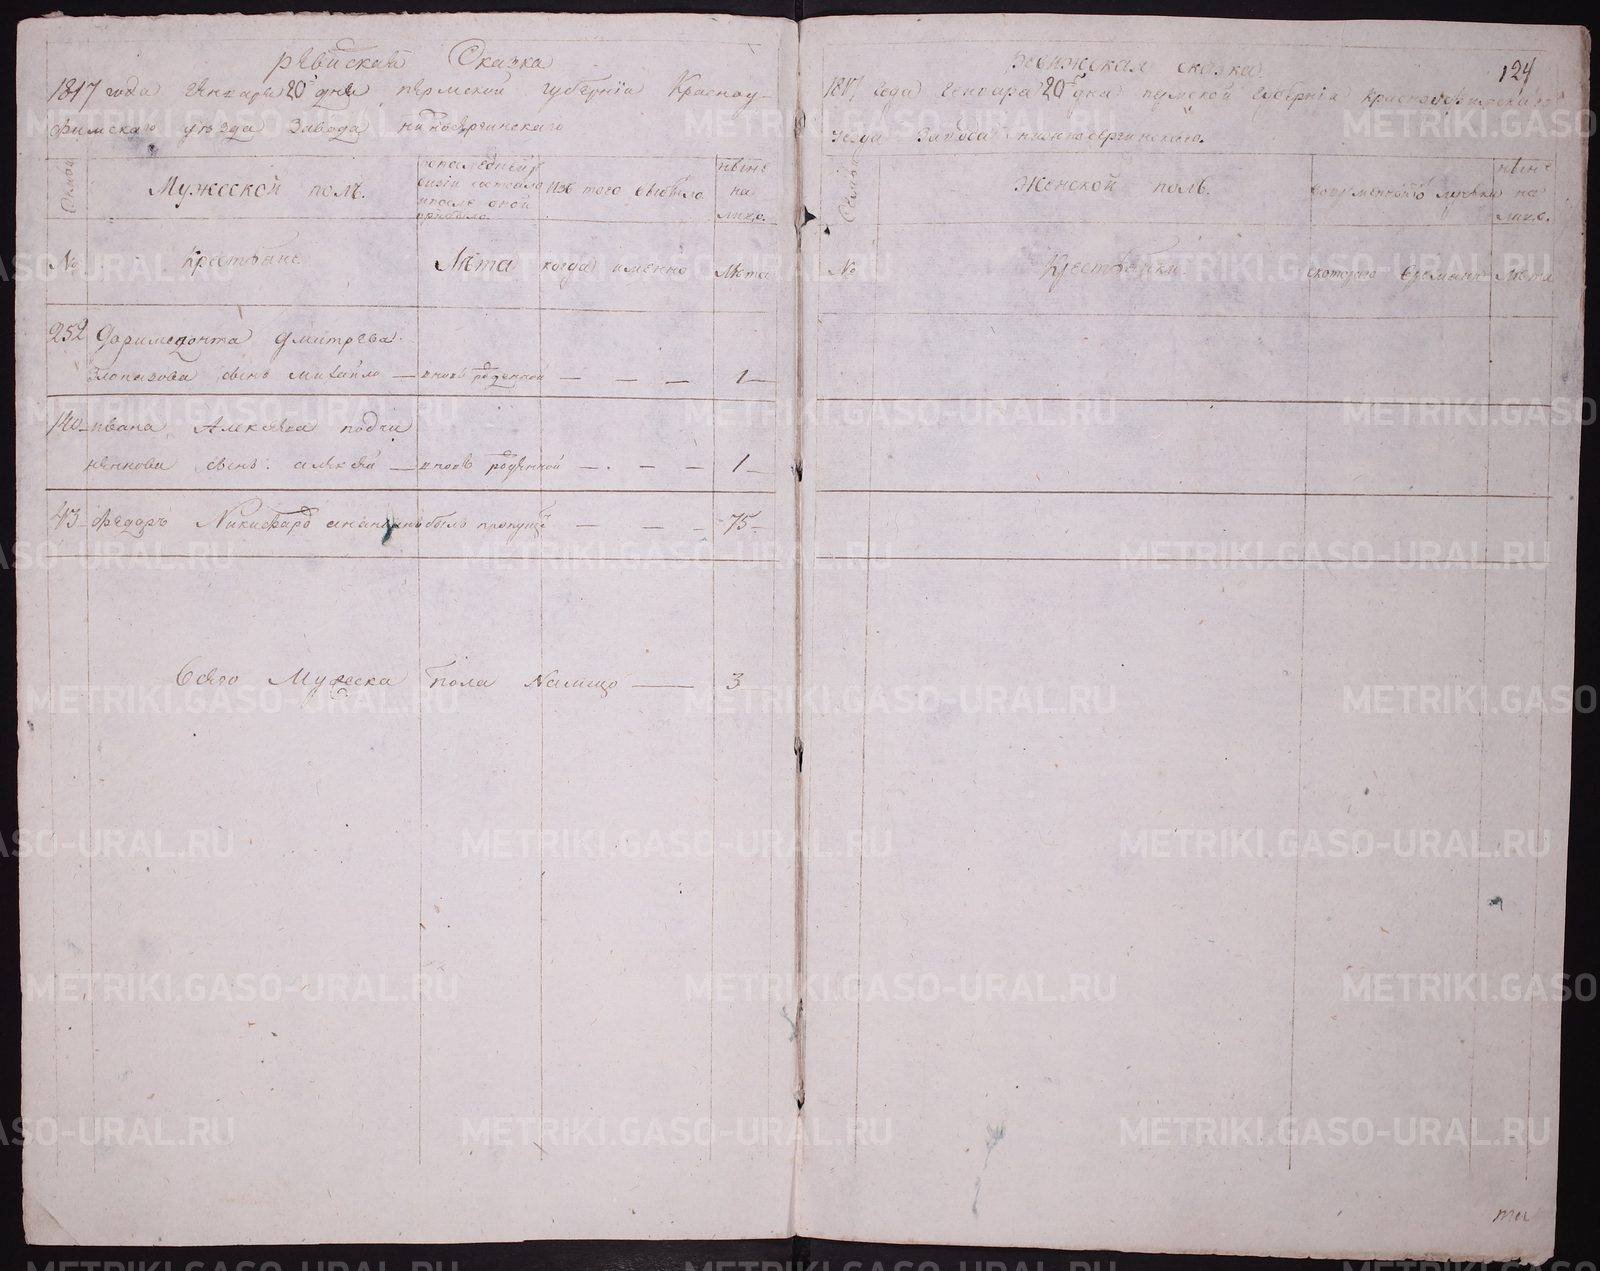 Ревиская Сказка
1817 года Генваря 20го дня пермской губернïи Красноу-
фимскаго уѣзда Завода нижносергинскаго
Семьи
Мужеской полъ.
состояло
и послѣ оной
прибыло.
Изъ того выбыло
нынѣ
на
лицо.
№
Крестьяне
Лѣта
когда именно
Лѣта
252
Дмитрева
сынъ Михайло — вновь рожденной — — — 1 —
140 Ивана Алексѣева подчи
неннова сынъ алексѣй — вновь рожденной — — — 1 —
43 Федоръ Никифоръ былъ пропущ — — — 75 —
Всего Мужеска пола Налицо — 3
124
Ревижская сказка
1817 года Генваря 20го дня пермской губернïи Красноуфимскаго
уезда Завода нижносергинскаго.
Семьи
Женской полъ.
во временной отлучке
нынѣ
на
лицо.
№
Крестьянки.
с котораго времени
Лѣта
METRIKI.GASO-URAL.RU